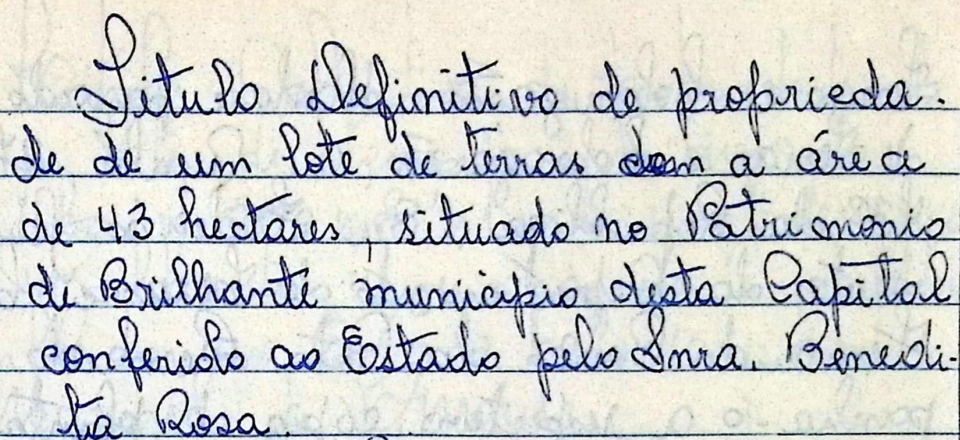 Titulo Definitivo de proprieda-
de de um lote de terras com a área
de 43 hectares, situado no Patrimonio
de Brilhante municipio desta Capital
conferido ao Estado pelo Snra. Benedi-
ta Rosa.